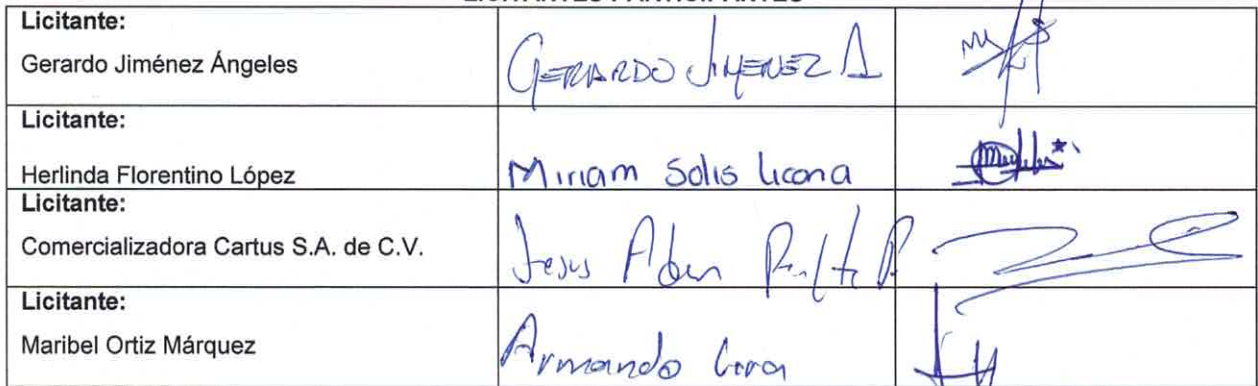 LICITANTES PARTICIPANTES
Licitante:
Gerardo Jiménez Ángeles
GERARDO JIMENEZ A
Licitante:
Herlinda Florentino López
Miriam Solis Licona
Licitante:
Comercializadora Cartus S.A. de C.V.
Jesus
Licitante:
Maribel Ortiz Márquez
Armando